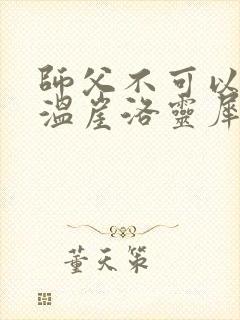 師父不可以
溫崖洛靈犀
董天策